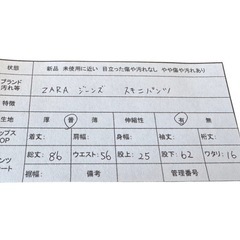 状態 新品 未使用に近い 目立った傷や汚れなし やや傷や汚れあり
ブランド
汚れ等 ZARA ジーンズ スキニパンツ
特徴
生地 厚 普 薄 伸縮性 有 無
ップス
OP 着丈: 肩幅: 身幅: 袖丈: 裄丈:
ンツ
ート 総丈:86 ウエスト:56 股上:25 股下:62 ワタリ:16
裾幅: 備考 管理番号